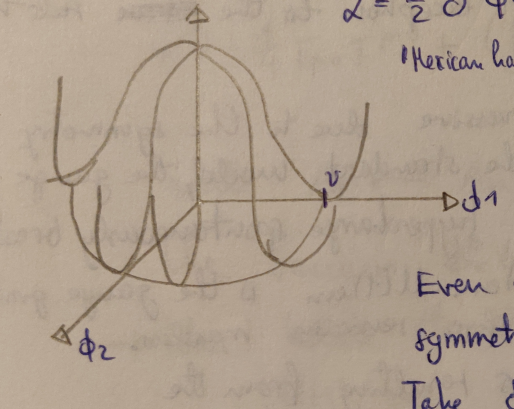 L = 1/2 ∂
"Mexican ha
v
ϕ1
ϕ2
Even
symmet
Take